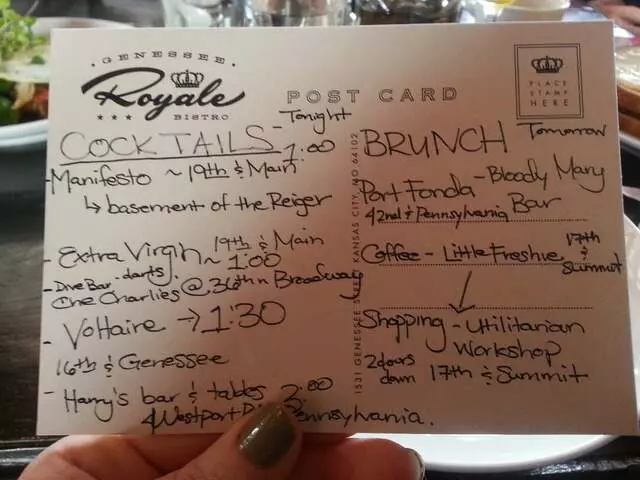 GENESSEE
Royale
BISTRO
POST CARD
PLACE
STAMP
HERE
COCKTAILS - Tonight
1:00
Manifesto ~ 19th & Main
↳ basement of the Reiger
- Extra Virgin 19th & Main
~ 1:00
- Dive Bar - darts
One Charlies @ 36th n Broadway
- Voltaire → 1:30
16th & Genessee
- Harry's bar & tables 3:00
Westport Pennsylvania.
1531 GENESSEE STREET KANSAS CITY, MO 64102
BRUNCH Tomorrow
Port Fonda - Bloody Mary
Bar
42nd & Pennsylvania
Coffee - Little Freshie 17th
& Summit
↓
Shopping - Utilitarian
Workshop
2 doors
down 17th & Summit